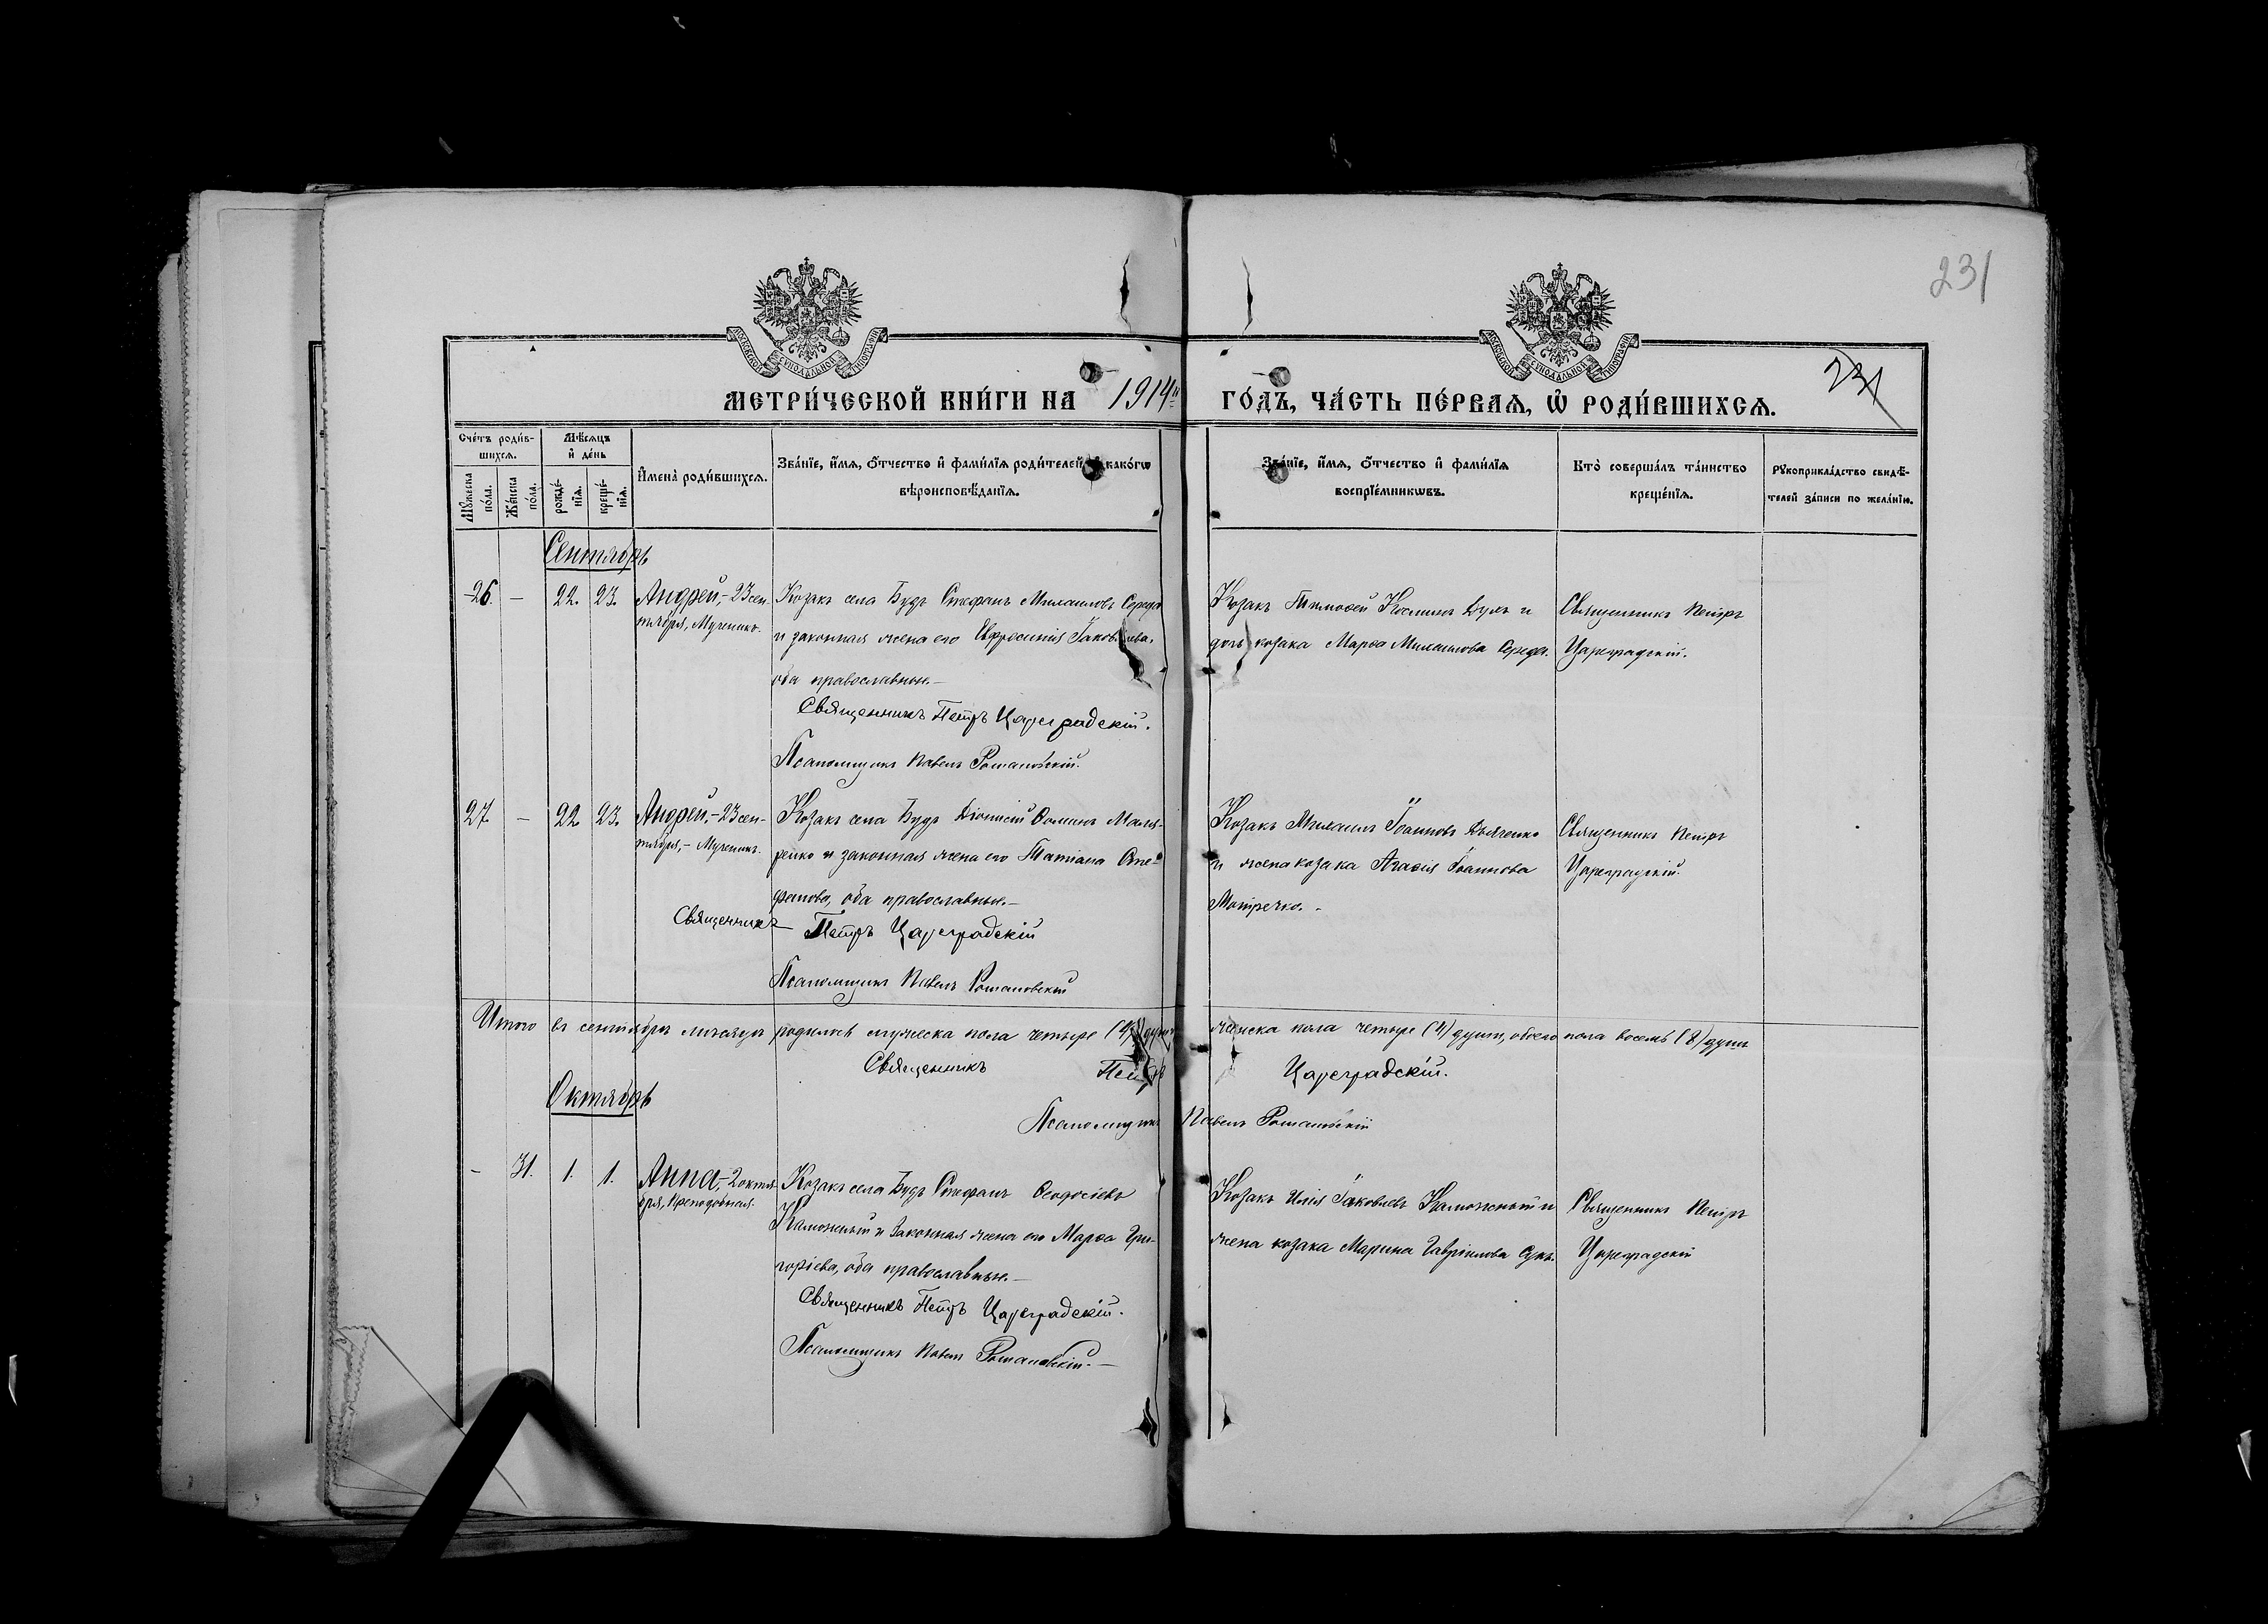 231
МОСКОВСКОЙ СУНОДАЛЬНОЙ ТИПОГРАФІИ
МОСКОВСКОЙ СУНОДАЛЬНОЙ ТИПОГРАФІИ
231
МЕТРИ́ЧЕСКОЙ КНИ́ГИ НА 1914й ГО́ДЪ, ЧА́СТЬ ПЕ́РВАѦ, Ѡ РОДИ́ВШИХСѦ.
Сче́тъ роди́в-
шихсѧ.
Мꙋ́жеска по́ла.
Же́нска по́ла.
Мѣ́сѧцъ и҆ де́нь
рожде́-
нїѧ.
креще́-
нїѧ.
И҆мена̀ роди́вшихсѧ.
Зва́нїе, и҆́мѧ, ѻ҆́тчество и҆ фами́лїѧ роди́телей, и҆ како́гѡ
вѣроисповѣ́данїѧ.
Зва́нїе, и҆́мѧ, ѻ҆́тчество и҆ фами́лїѧ
воспрїе́мникѡвъ.
Кто̀ соверша́лъ та́инство
креще́нїѧ.
Рꙋкоприкла́дство свидѣ́-
телей за́писи по жела́нїю.
Сентябрь
26. – 22. 23. Андрей,- 23 сен-
тября, Мученикъ.
Козакъ села Будъ Стефанъ Михаиловъ Середа
и законная жена его Евфросинія Іаковлева,
оба православные.–
Священникъ Петръ Цареградскій.
Псаломщикъ Павелъ Романовскій.
Козакъ Тимоѳей Косминъ и
дочь козака Марѳа Михаилова Середа.
Священникъ Петръ
Цареградскій.
27. – 22. 23. Андрей,- 23 сен-
тября,- Мученикъ.
Козакъ села Будъ Діонисій Ѳоминъ Маля-
ренко и законная жена его Татіана Сте-
фанова, оба православные.–
Священникъ Петръ Цареградскій
Псаломщикъ Павелъ Романовскій
Козакъ Михаилъ Іоанновъ Дьяченко
и жена козака Агаѳія Іоаннова
Мотречко.-
Священникъ Петръ
Цареградскій.
Итого въ сентябрѣ мѣсяцѣ родилось мужеска пола четыре (4) души, женска пола четыре (4) души, обоего пола восемь (8) душъ
Священникъ Петръ Цареградскій.
Октябрь
Псаломщикъ Павелъ Романовскій
– 31. 1. 1. Анна,- 2 октя-
бря, Преподобная.
Козакъ села Будъ Стефанъ Ѳеодосіевъ
и законная жена его Марѳа Гри-
горіева, оба православные.–
Священникъ Петръ Цареградскій.
Псаломщикъ Павелъ Романовскій.–
Козакъ Илія Іаковлевъ и
жена козака Марина Гавріилова
Священникъ Петръ
Цареградскій